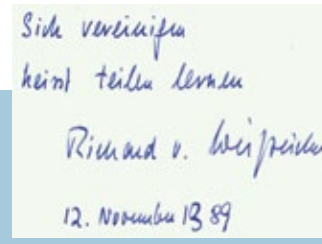 Sich vereinigen
heisst teilen lernen
Richard v. Weizsäcker
12. November 1989